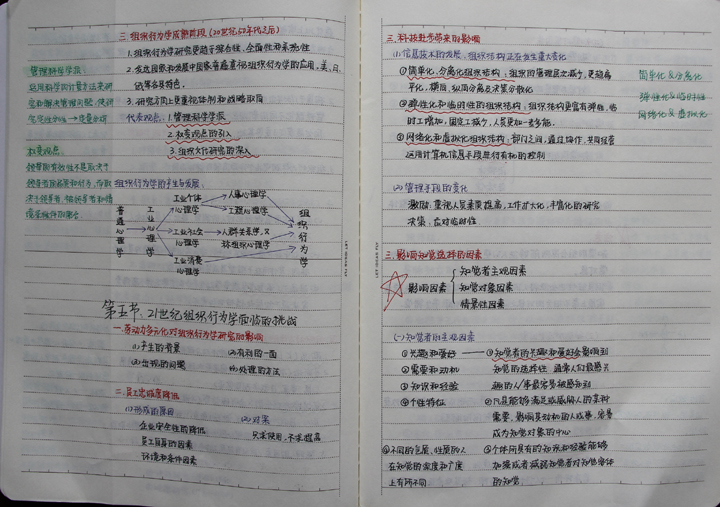 三.组织行为学成熟阶段(20世纪50年代之后)
1.组织行为学研究更趋于综合性、全面性和系统性
2.发达国家和发展中国家普遍重视组织行为学的应用,美、日、
3.研究方向上更重视体制和战略取向
代表观点:1.管理科学学派
2.权变观点的引入
3.组织文化研究的深入
管理科学学派:
运用科学的计量方法来研
究和解决管理问题,使研
究定性分析→定量分析
权变观点:
组织行为学的产生与发展:
普通心理学
工业心理学
工业个体心理学
工业社会心理学
工业消费心理学
人事心理学
工程心理学
人群关系学,又
称组织心理学
组织行为学
第五节:21世纪组织行为学面临的挑战
一.劳动力多元化对组织行为学研究的影响
(1)产生的背景 (2)有利的一面
(3)出现的问题 (4)处理的方法
二.员工忠诚度降低
(1)形成的原因 (2)对策
企业安全性的降低 只求使用,不求拥有
员工自身的因素
环境和条件因素
三.科技进步带来的影响
(1)信息技术的发展,组织结构正在发生重大变化
①简单化、分离化组织结构:组织的管理层次减少,更趋扁
平化,横扁,纵向分离及决策分散化
②弹性化和临时性的组织结构:组织结构更富有弹性,临
时工增加,固定工减少,人员更加一专多能.
③网络化和虚拟化组织结构:部门之间,通过协作,共同经营
运用计算机信息手段进行有机的控制
简单化&分离化
弹性化&临时性
网络化&虚拟化
(2)管理手段的变化
激励:重视人员素质提高,工作扩大化,丰富化的研究
决策:应对临时性
三.影响知觉选择的因素
影响因素
知觉者主观因素
知觉对象因素
情景性因素
(一)知觉者的主观因素
①兴趣和爱好 ①知觉者的兴趣和爱好会影响到
②需要和动机 知觉的选择性 通常人们最感兴
③知识和经验 趣的人/事最容易被感知到
④个性特征 ②凡是能够满足或威胁人的某种
需要,影响其动机的人或事,容易
成为知觉对象的中心
④不同的气质、性质的人 ③个体所具有的知识和经验能够
在知觉的深度和广度 加强或者减弱知觉者对知觉客体
上有所不同 的知觉